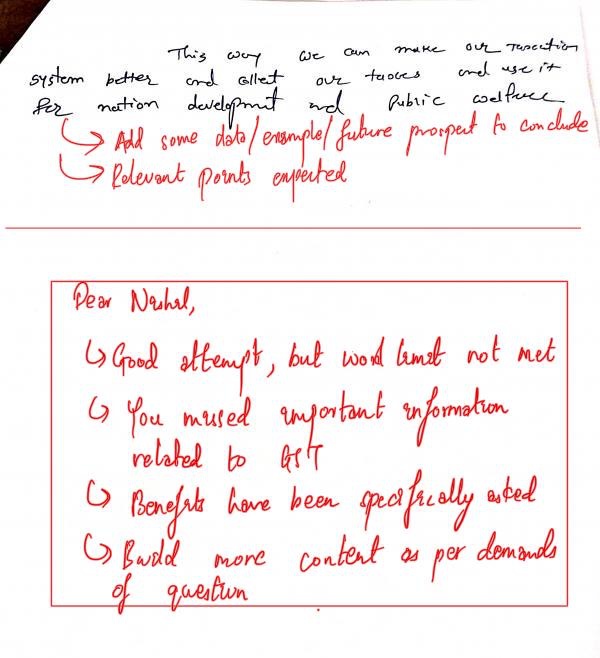 This way we can make our taxation
system better and collect our taxes and use it
for nation development and Public welfare
↳ Add some data/example/future prospect to conclude
↳ Relevant points expected
Dear
↳ Good attempt, but word limit not met
↳ You missed important information
related to GST
↳ Benefits have been specifically asked
↳ Build more content as per demands
of question